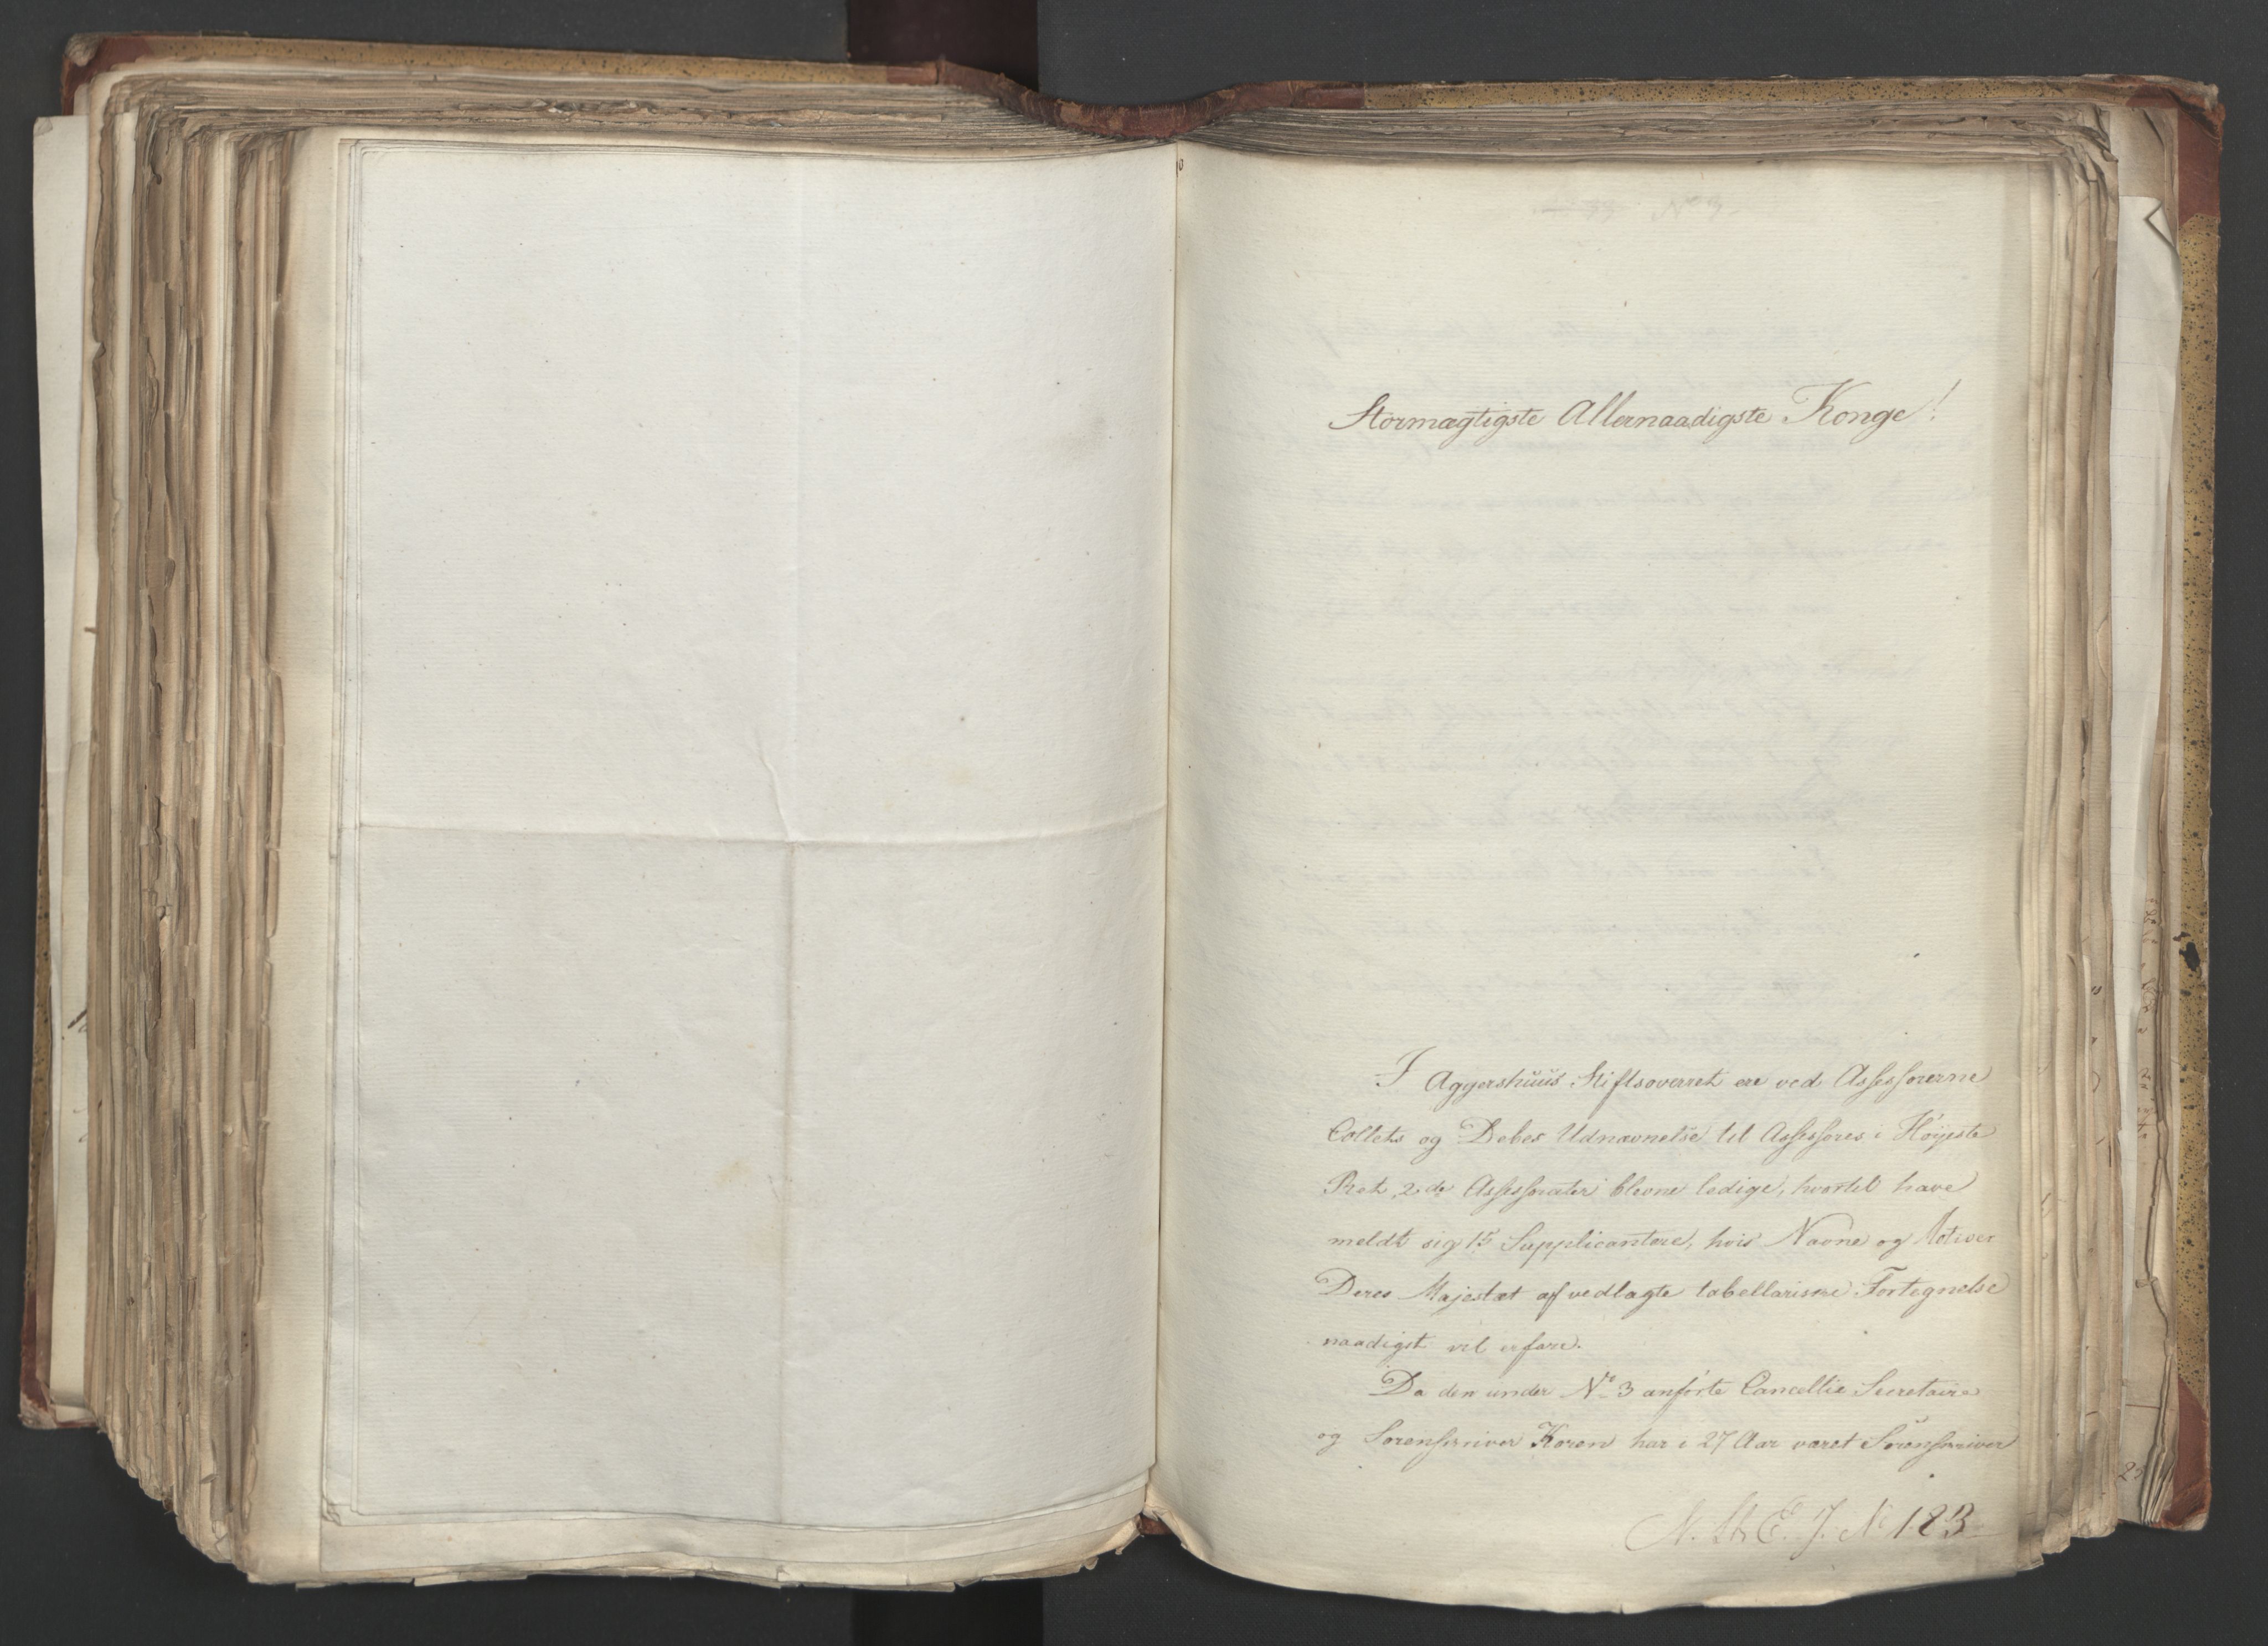 Stormægtigste Allernaadigste Konge!
I Aggershuus Stiftsoverret ere ved Assessorerne
Collets og Debes Udnævnelse til Assessores i Høyeste
Ret, 2de Assessorater blevne ledige, hvortil have
meldt sig 15 Supplicantere, hvis Navne og Motiver
Deres Majestæt af vedlagte tabellariske Fortegnelse
naadigst vil erfare.
Da den under No 3 anførte Cancellie Secretaire
og Sorenskriver Koren har i 27 Aar været Sorenskriver
N. St. E. J. No 183